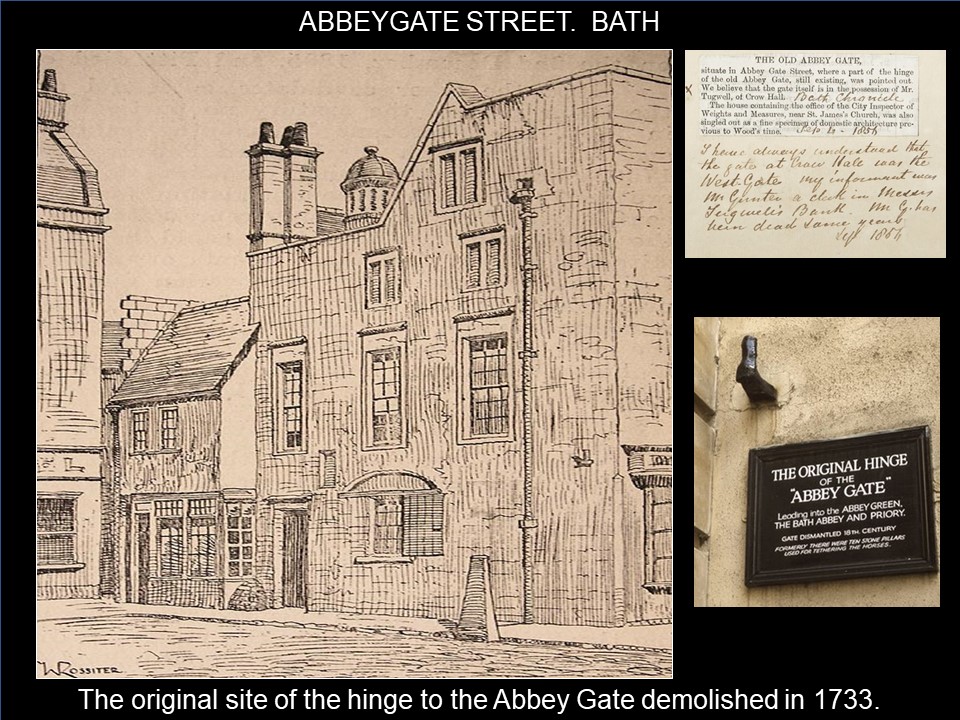 ABBEYGATE STREET.  BATH
THE OLD ABBEY GATE,
situate in Abbey Gate Street, where a part of the hinge
of the old Abbey Gate, still existing, was pointed out.
We believe that the gate itself is in the possession of Mr.
Tugwell, of Crow Hall. Bath Chronicle
The house containing the office of the City Inspector of
Weights and Measures, near St. James's Church, was also
singled out as a fine specimen of domestic architecture pre-
vious to Wood's time.
I have always understood that
the gate at Crow Hall was the
West Gate my informant was
Mr Gunter a clerk in Messrs
Tugwell's Bank. Mr G. has
been dead some years
THE ORIGINAL HINGE
OF THE
"ABBEY GATE"
Leading into the ABBEY GREEN,
THE BATH ABBEY AND PRIORY.
GATE DISMANTLED 18TH. CENTURY
FORMERLY THERE WERE TEN STONE PILLARS
USED FOR TETHERING THE HORSES.
W ROSSITER
The original site of the hinge to the Abbey Gate demolished in 1733.